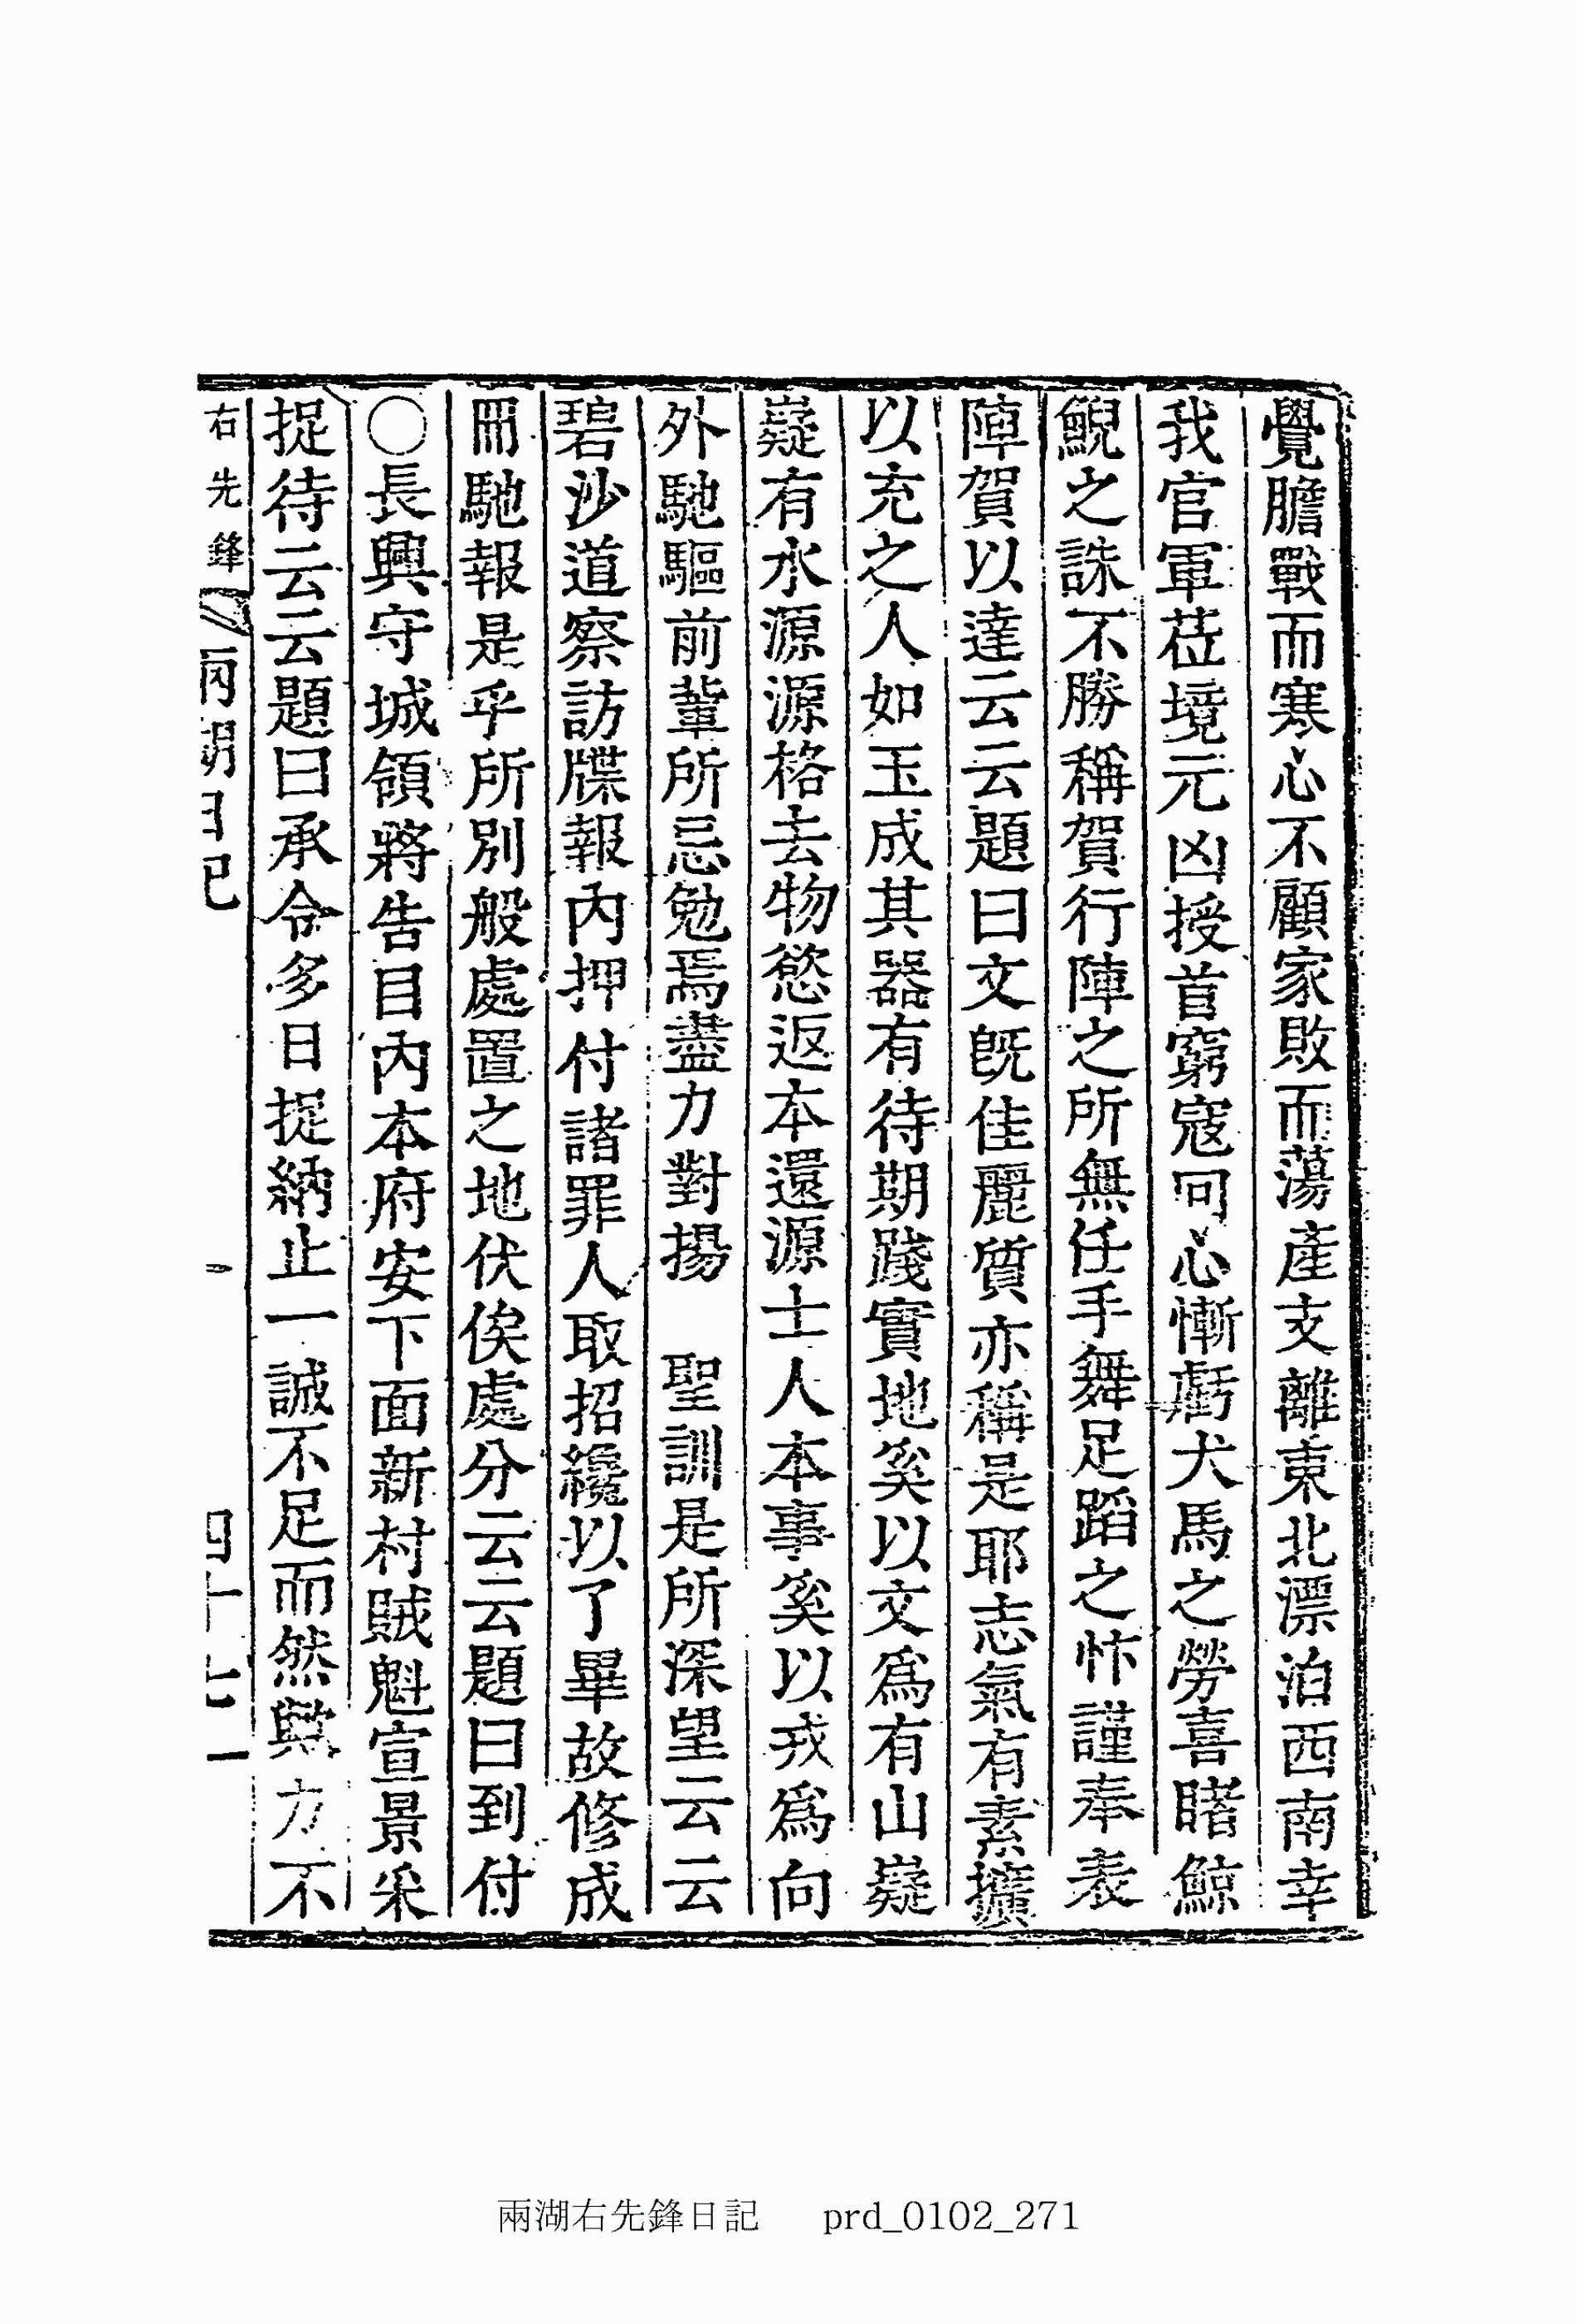 覺膽戰而寒心不顧家敗而蕩產支離東北漂泊西南幸
我官軍莅境元凶授首窮寇回心慚虧犬馬之勞喜睹鯨
鯢之誅不勝稱賀行陣之所無任手舞足蹈之忭謹奉表
陣賀以達云云題曰文旣佳麗質亦稱是耶志氣有素擴
以充之人如玉成其器有待期踐實地奚以文爲有山嶷
嶷有水源源格去物慾返本還源士人本事奚以我爲向
外馳驅前輩所忌勉焉盡力對揚 聖訓是所深望云云
碧沙道察訪牒報內押付諸罪人取招纔以了畢故修成
冊馳報是乎所別般處置之地伏俟處分云云題曰到付
○長興守城領將告目內本府安下面新村賊魁宣景采
捉待云云題曰承令多日捉納止一誠不足而然歟力不
右先鋒 兩湖日記 一 四十七
兩湖右先鋒日記 prd_0102_271